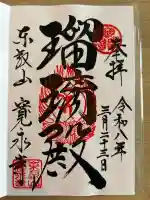 奉拝
令和八年
三月二十三日
瑠璃殿
東叡山 寛永寺